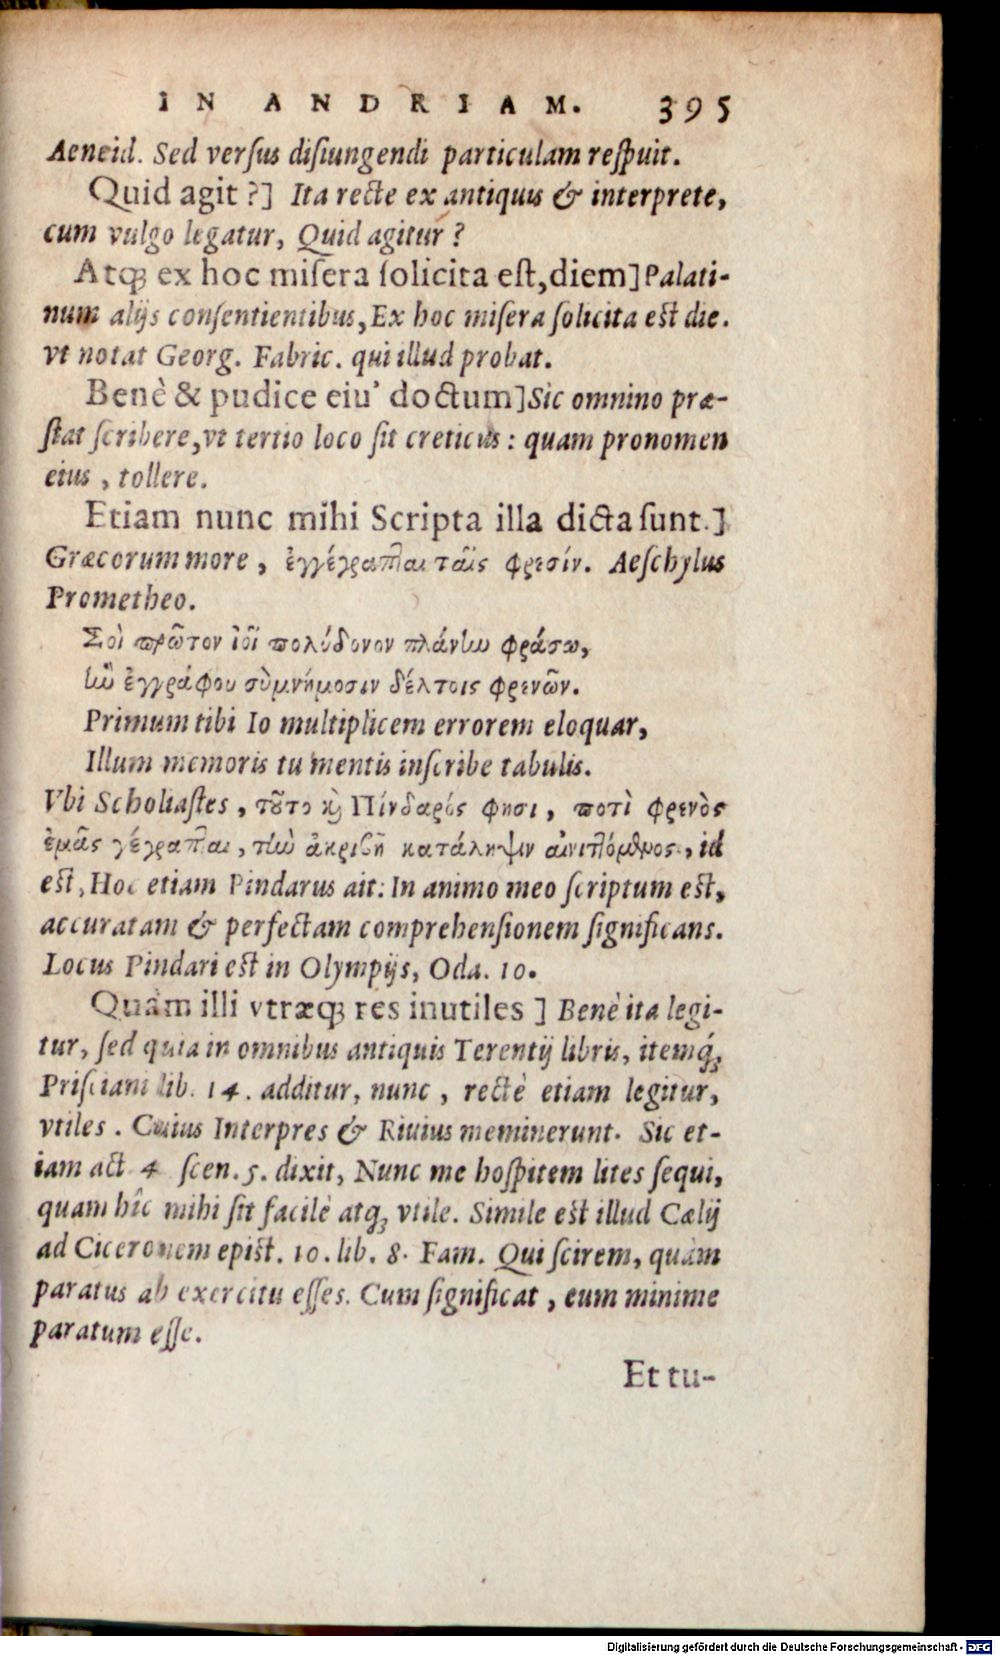 IN ANDRIAM. 395
Aeneid. Sed versus disiungendi particulam respuit.
Quid agit?] Ita recte ex antiquis & interprete,
cum vulgo legatur, Quid agitur?
Atq; ex hoc misera solicita est, diem] Palati-
num alijs consentientibus, Ex hoc misera solicita est die.
vt notat Georg. Fabric. qui illud probat.
Benè & pudice eiu' doctum] Sic omnino præ-
stat scribere, vt tertio loco sit creticus: quam pronomen
eius, tollere.
Etiam nunc mihi Scripta illa dicta sunt.]
Græcorum more, ἐγγέγραπται ταῖς φρεσίν. Aeschylus
Prometheo.
Σοὶ πρῶτον ἰοῖ πολύδονον πλάνην φράσω,
ἣν ἐγγράφου σὺ μνήμοσιν δέλτοις φρενῶν.
Primum tibi Io multiplicem errorem eloquar,
Illum memoris tu mentis inscribe tabulis.
Vbi Scholiastes, τοῦτο καὶ Πίνδαρός φησι, ποτὶ φρενὸς
ἐμᾶς γέγραπται, τὴν ἀκριβῆ κατάληψιν αἰνιττόμενος, id
est, Hoc etiam Pindarus ait: In animo meo scriptum est,
accuratam & perfectam comprehensionem significans.
Locus Pindari est in Olympijs, Oda. 10.
Quàm illi vtræq; res inutiles] Benè ita legi-
tur, sed quia in omnibus antiquis Terentij libris, itemq́;
Prisciani lib. 14. additur, nunc, rectè etiam legitur,
vtiles. Cuius Interpres & Riuius meminerunt. Sic et-
iam act 4 scen. 5. dixit, Nunc me hospitem lites sequi,
quam hîc mihi sit facilè atq; vtile. Simile est illud Cælij
ad Ciceronem epist. 10. lib. 8. Fam. Qui scirem, quàm
paratus ab exercitu esses. Cum significat, eum minime
paratum esse.
Et tu-
Digitalisierung gefördert durch die Deutsche Forschungsgemeinschaft - DFG